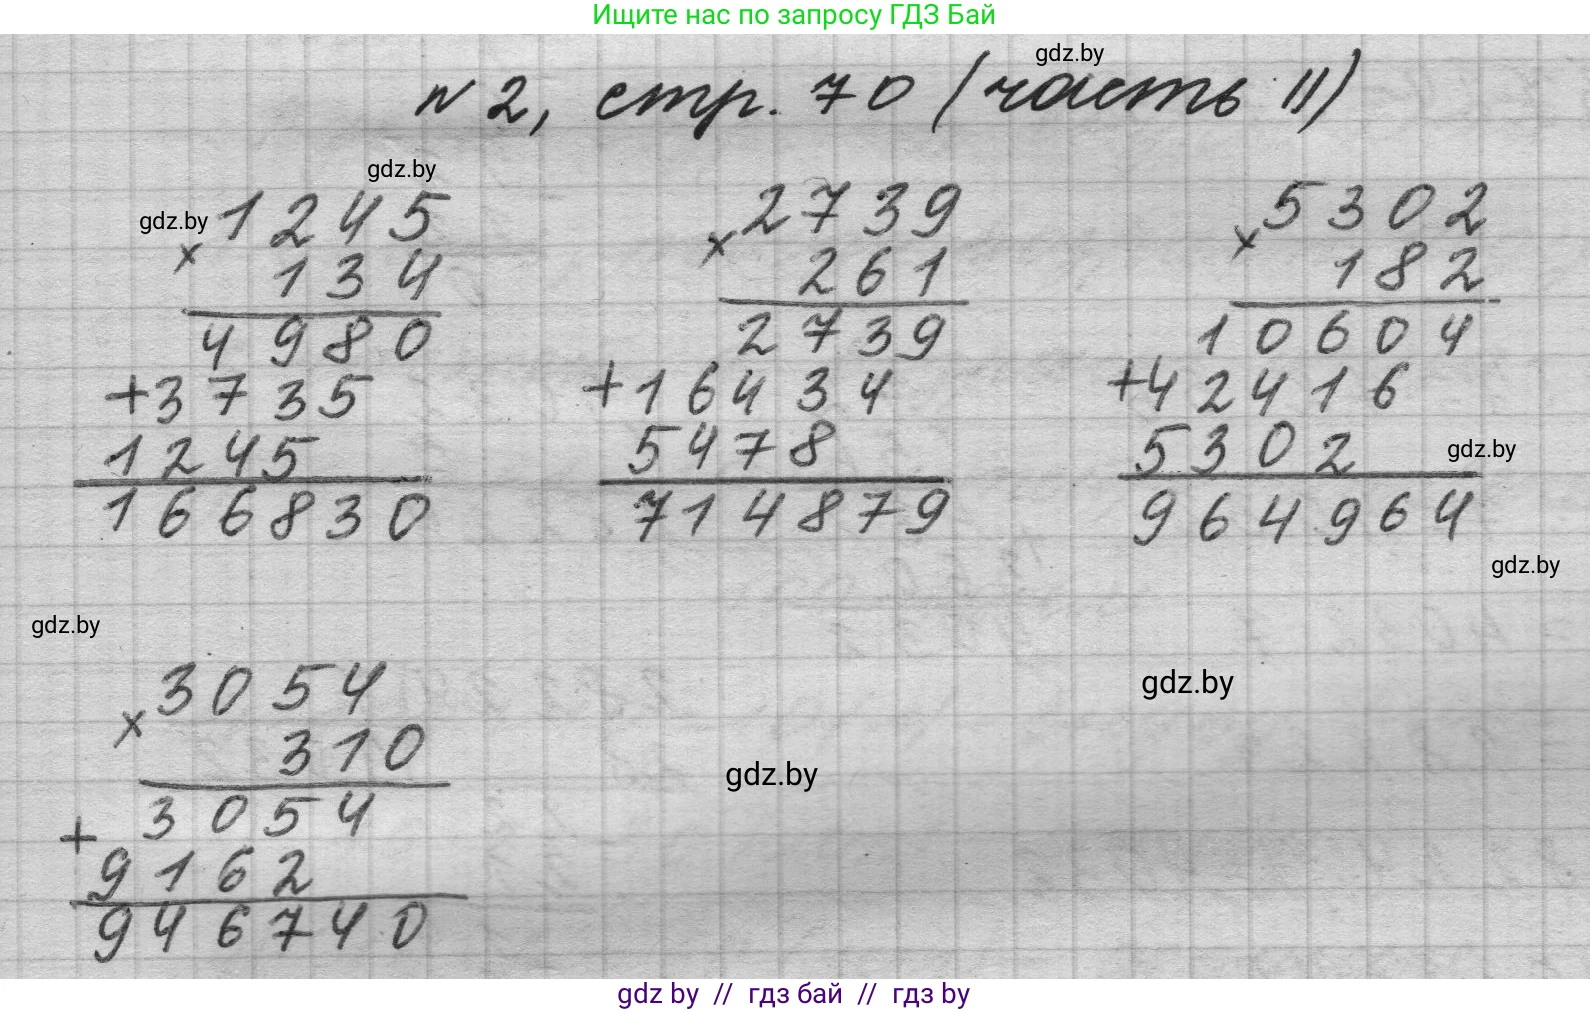 Ищите нас по запросу ГДЗ Бай
gdz.by
№ 2, стр. 70 (часть II)
gdz.by
gdz.by
× 1245
134
4980
+3735
1245
166830
× 2739
261
2739
+16434
5478
714879
× 5302
182
10604
+42416
5302
gdz.by
964964
gdz.by
gdz.by
× 3054
310
3054
+
9162
946740
gdz.by
gdz.by
gdz by // гдз бай // гдз by